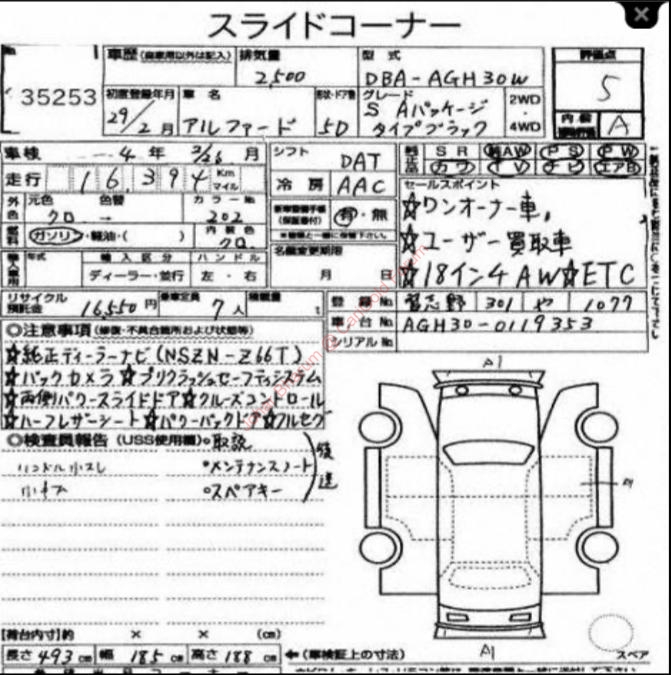 スライドコーナー
No.
35253
車歴 (自家用以外は記入) 排気量 2,500 型式 DBA-AGH30W 評価点 5
初度登録年月 29/2月 車名 アルファード 形状・ドア数 5D グレード S Aパッケージ タイプブラック 2WD・4WD 内装 A
車検 4年 2/26月 シフト DAT 純正品 SR AW PS PW カワ TV ナビ エアB
走行 16,394 Km マイル 冷房 AAC セールスポイント
外色 元色 クロ 色替 → カラーNo 202 有・無 ☆ワンオーナー車,
燃料 ガソリン・軽油・( ) 内装色 クロ 名義変更期限 ☆ユーザー買取車
年式 輸入区分 ディーラー・並行 ハンドル 左・右 月 日 ☆18インチAW☆ETC
リサイクル預託金 16,550円 乗車定員 7人 積載量 t 登録No 習志野 301 や 1077
車台No AGH30-0119353
シリアルNo
◎注意事項 (修復・不具合箇所および状態等)
☆純正ディーラーナビ(NSZN-Z66T)
☆バックカメラ☆プリクラッシュセーフティシステム
☆両側パワースライドドア☆クルーズコントロール
☆ハーフレザーシート☆パワーバックドア☆フルセグ
◎検査員報告 (USS使用欄) ○取説 後送
ハンドル小スレ ○メンテナンスノート
小キズ ○スペアキー
A1
A1
スペア
【荷台内寸】約 × × (cm)
長さ 493cm 幅 185cm 高さ 188cm ←(車検証上の寸法)